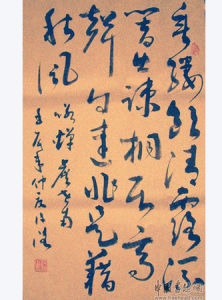 垂緌饮清露流
响出疏桐居高
声自远非是藉
秋风
咏蝉 虞世南
壬辰年仲夏